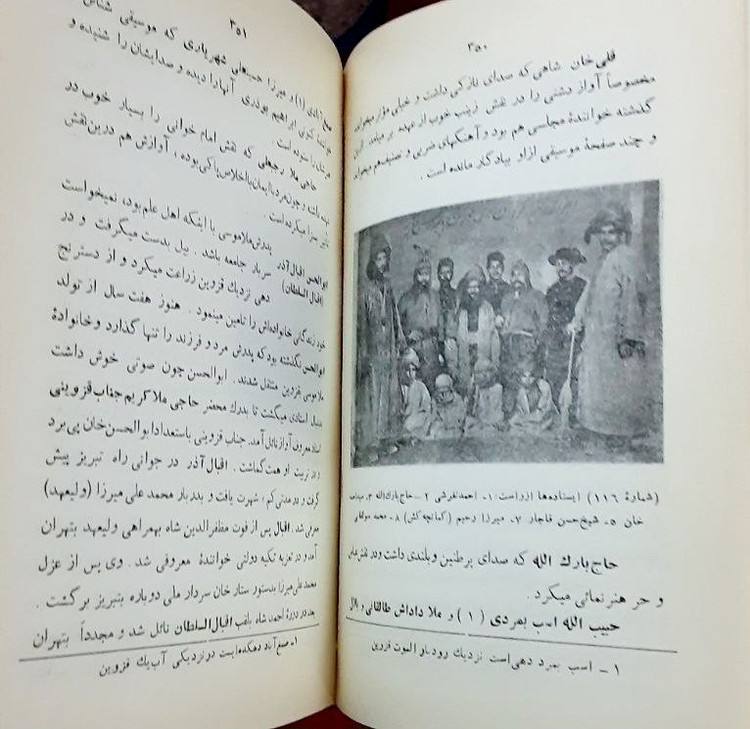 ۳۵۰
قلی‌خان شاهی که صدای نازکی داشت و خیلی مؤثر میخواند
مخصوصاً آواز دشتی را در نقش زینب خوب از عهده بر میآمد. این
گذشته خوانندهٔ مجلسی هم بود و آهنگهای ضربی و تصنیف هم میخواند
و چند صفحهٔ موسیقی از او بیادگار مانده است.
(شمارهٔ ۱۱۶) ایستاده‌ها از راست: ۱ـ احمد تفرشی ۲ـ حاج بارك‌اله ۳ـ
خان ۵ـ شیخ‌حسن قاجار. ۷ـ میرزا رحیم (کمانچه‌کش) ۸ـ محمد
حاج بارك الله که صدای پرطنین و بلندی داشت و در نقش
و حر هنر نمائی میکرد.
حبیب الله اسب بمردی (۱) و ملا داداش طالقانی و بلال
۱ـ اسب بمرد دهی‌است نزدیك رودبار الموت قزوین
۳۵۱
آبادی (۱) و میرزا حسینعلی شهریاری که موسیقی شناس
ابراهیم بوذری آنها را دیده و صدایشان را شنیده و
را ستوده است.
حاجی ملا رجبعلی که نقش امام خوانی را بسیار خوب در
داشته و چون مرد با ایمان با اخلاص پاکی بوده، آوازش هم درین نقش
میکرده است.
ابوالحسن اقبال آذر پدرش ملاموسی با اینکه اهل علم بود، نمیخواست
(اقبال السلطان) سربار جامعه باشد. بیل بدست میگرفت و در
دهی نزدیك قزوین زراعت میکرد و از دسترنج
خود زندگانی خانواده‌اش را تامین مینمود. هنوز هفت سال از تولد
ابوالحسن نگذشته بود که پدرش مرد و فرزند را تنها گذارد و خانوادهٔ
ملا موسی بقزوین منتقل شدند. ابوالحسن چون صوتی خوش داشت
دنبال استادی میگشت تا بدرك محضر حاجی ملا کریم جناب قزوینی
استاد معروف آواز نائل آمد. جناب قزوینی باستعداد ابوالحسن‌خان پی برد
و در تربیت او همت گماشت. اقبال آذر در جوانی راه تبریز پیش
گرفت و در مدتی کم، شهرت یافت و بدربار محمد علی میرزا (ولیعهد)
معرفی شد. اقبال پس از فوت مظفرالدین شاه بهمراهی ولیعهد بتهران
آمد و در تعزیه تکیه دولتی خوانندهٔ معروفی شد. وی پس از عزل
محمد علی میرزا بدستور ستار خان سردار ملی دوباره بتبریز برگشت.
بعد در دورهٔ احمد شاه بلقب اقبال السلطان نائل شد و مجدداً بتهران
۱ـ صبح آباد دهکده‌ایست در نزدیکی آب‌یك قزوین